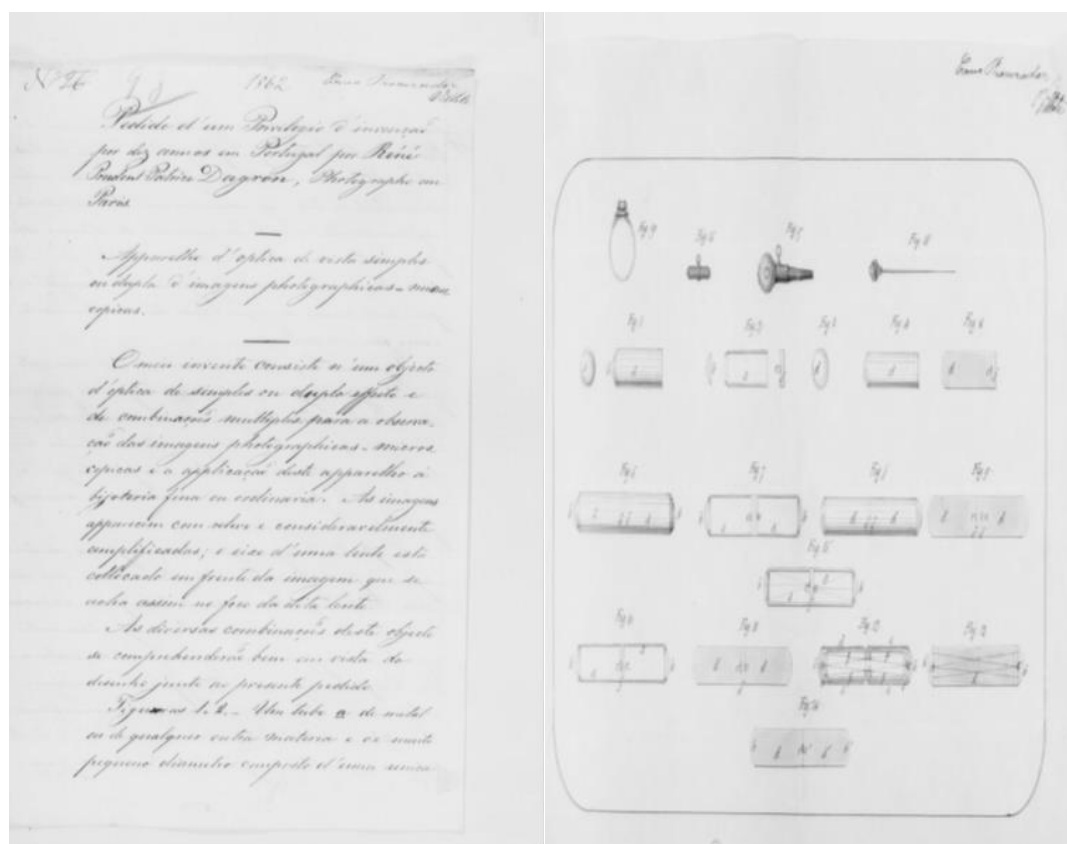 Nº 26 1862
Pedido d'um Privilegio d'invençaõ
por dez annos em Portugal por Réné
Prudent Patrice Dagron, Photographe em
Paris
Apparelho d'optica de vista simples
ou dupla d'imagens photographicas-micros
copicas.
O meu invento consiste n'um objecto
d'optica de simples ou duplo effeito e
de combinaçoẽs multiplas para a observa-
çaõ das imagens photographicas-micros
copicas e a applicaçaõ deste apparelho á
bijoteria fina ou ordinaria. As imagens
apparecem com relevo e consideravelmente
amplificadas; o eixo d'uma lente está
collocado em frente da imagem que se
acha assim no foco da dita lente
As diversas combinaçoẽs deste objecto
se comprehenderaõ bem em vista do
desenho junto ao presente pedido.
Figuras 1. 2. - Um tubo a de metal
ou de qualquer outra materia e de muito
pequeno diametro composto d'uma
Fig 9 Fig 6 Fig 7 Fig 8
Fig 1 Fig 2 Fig 3 Fig 4
Fig 6 Fig 7
Fig 15
Fig 12 Fig 13
Fig 14